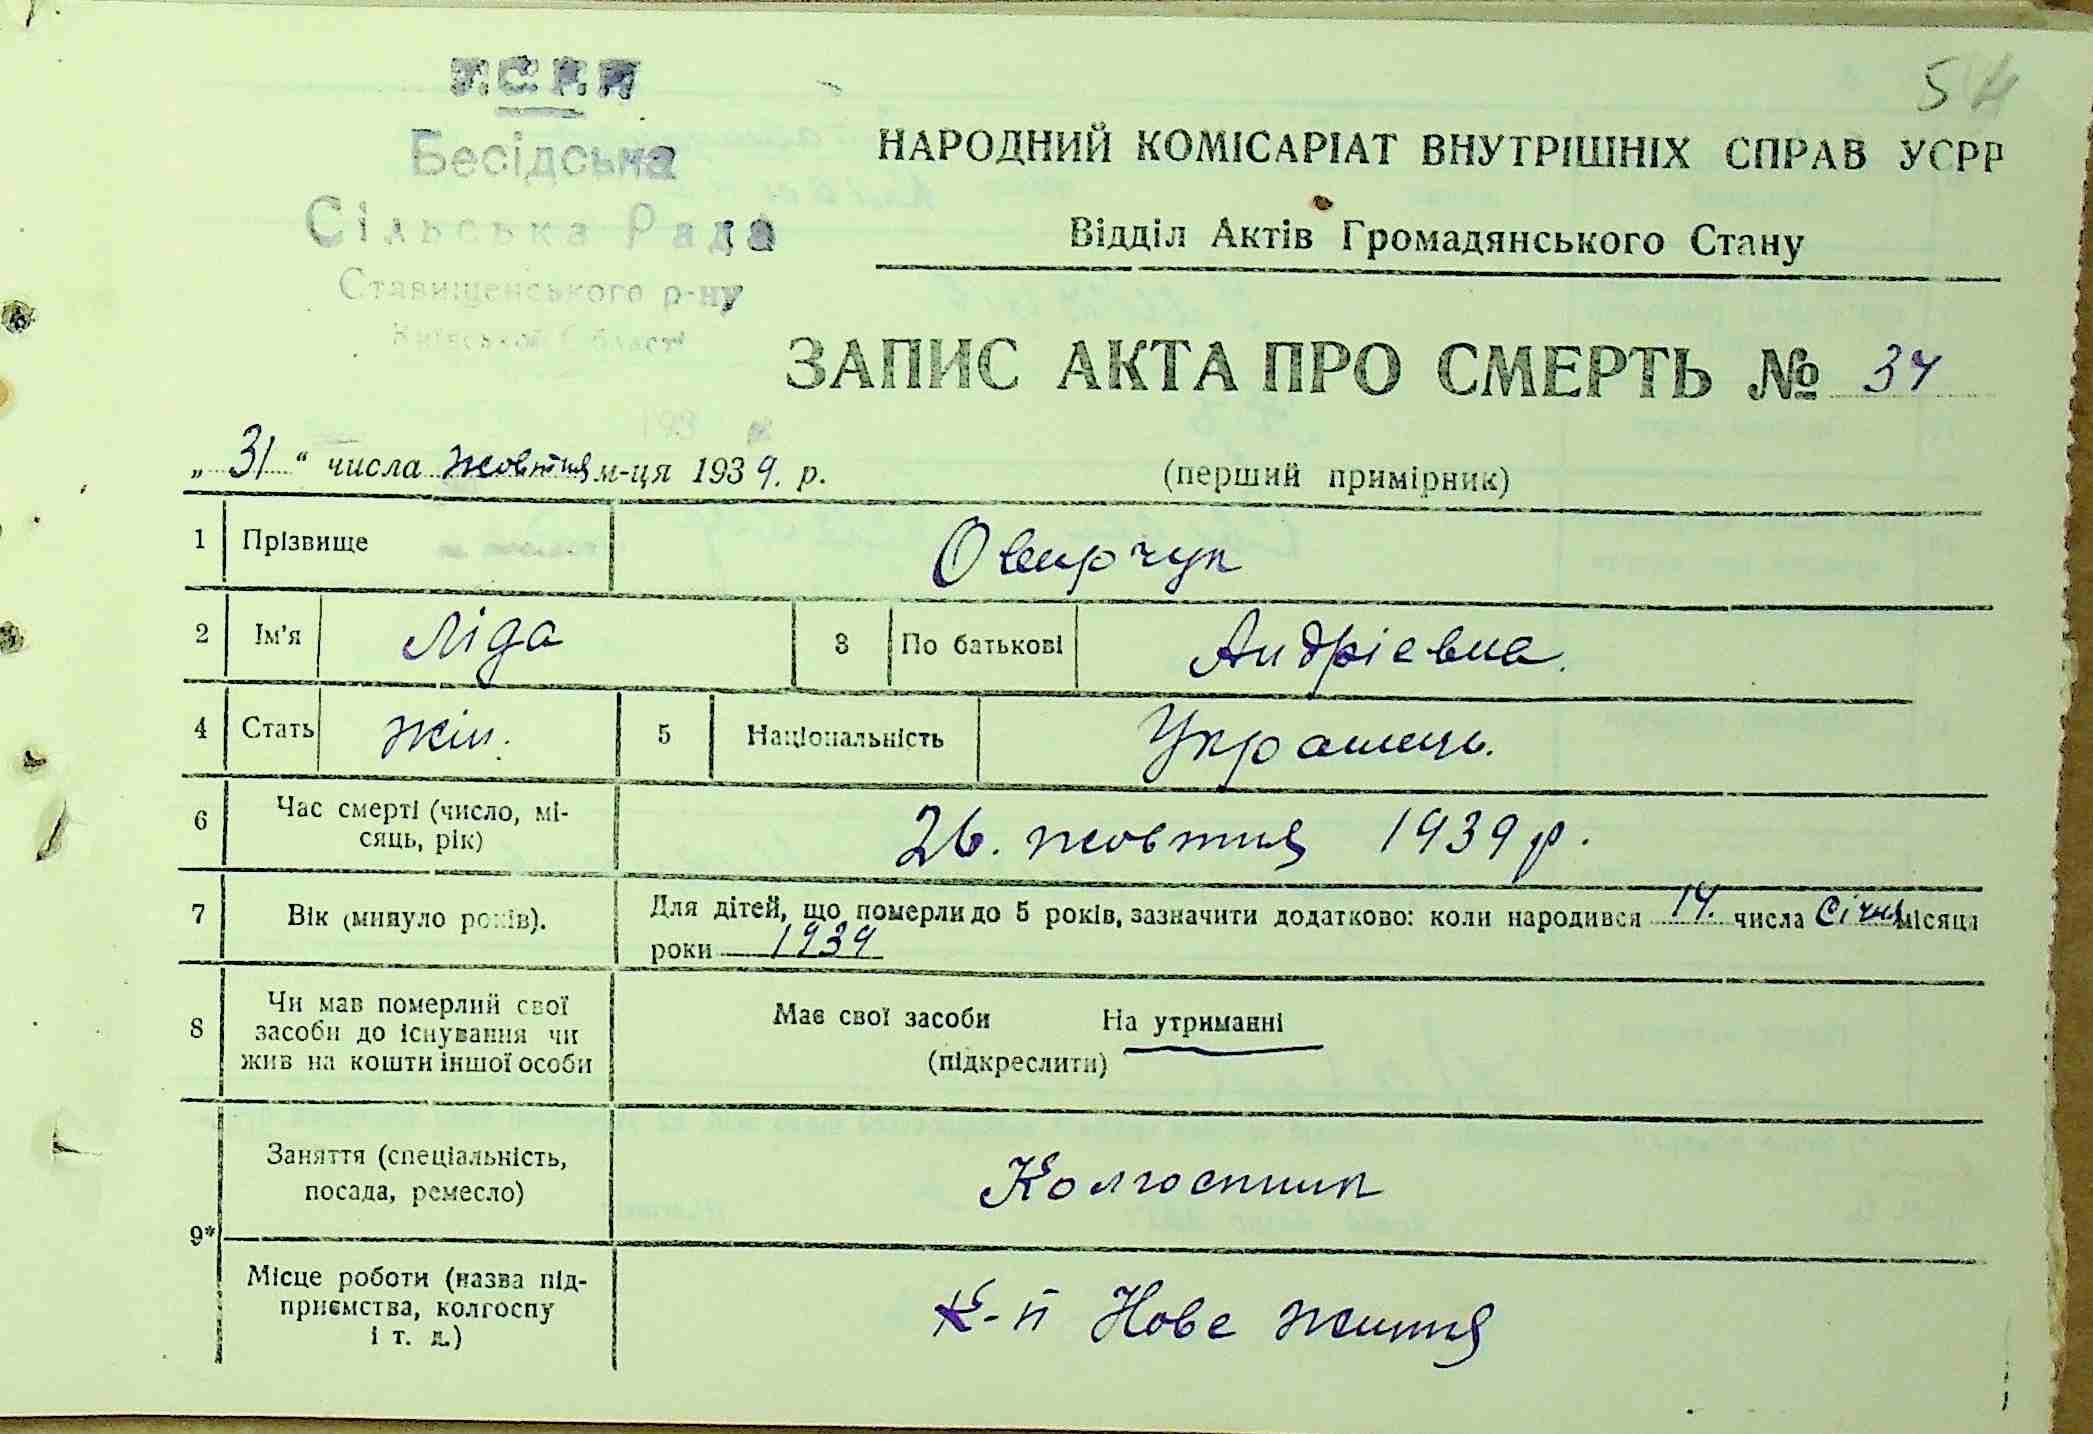 У.С.Р.Р.
54
Бесідська
Сільська Рада
Ставищенського р-ну
Київської Області
193
НАРОДНИЙ КОМІСАРІАТ ВНУТРІШНІХ СПРАВ УСРР
Відділ Актів Громадянського Стану
ЗАПИС АКТА ПРО СМЕРТЬ № 34
„ 31 “ числа жовтня м-ця 1939. р.
(перший примірник)
1 Прізвище Оверчук
2 Ім'я Ліда 3 По батькові Андріевна.
4 Стать жін. 5 Національність Українець.
6 Час смерті (число, мі-
сяць, рік) 26. жовтня 1939 р.
7 Вік (минуло років). Для дітей, що померли до 5 років, зазначити додатково: коли народився 14. числа Січня місяця
роки 1939
8 Чи мав померлий свої
засоби до існування чи
жив на кошти іншої особи
Має свої засоби На утриманні
(підкреслити)
9* Заняття (спеціальність,
посада, ремесло) Колгоспник
Місце роботи (назва під-
приємства, колгоспу
і т. д.) К-п Нове життя